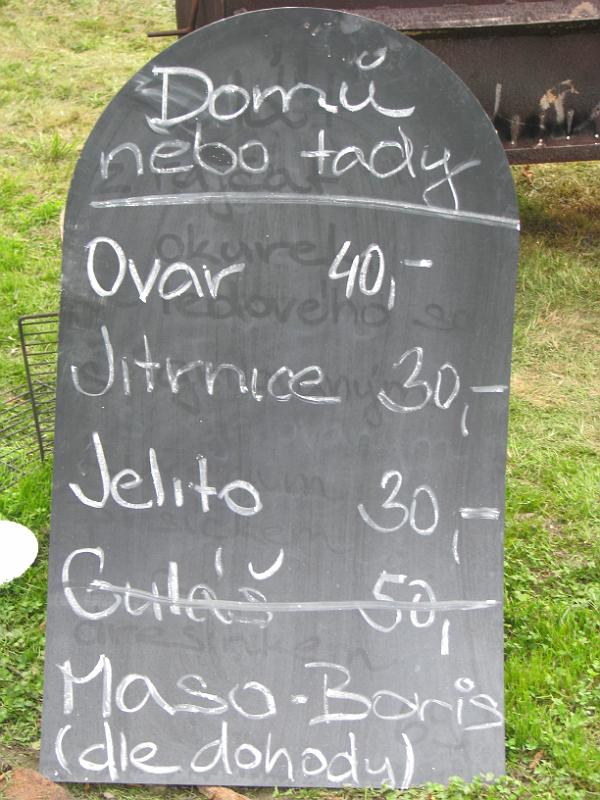 Domů
nebo tady
Ovar 40,-
Jitrnice 30,-
Jelito 30,-
Guláš 50,
Maso-Boris
(dle dohody)